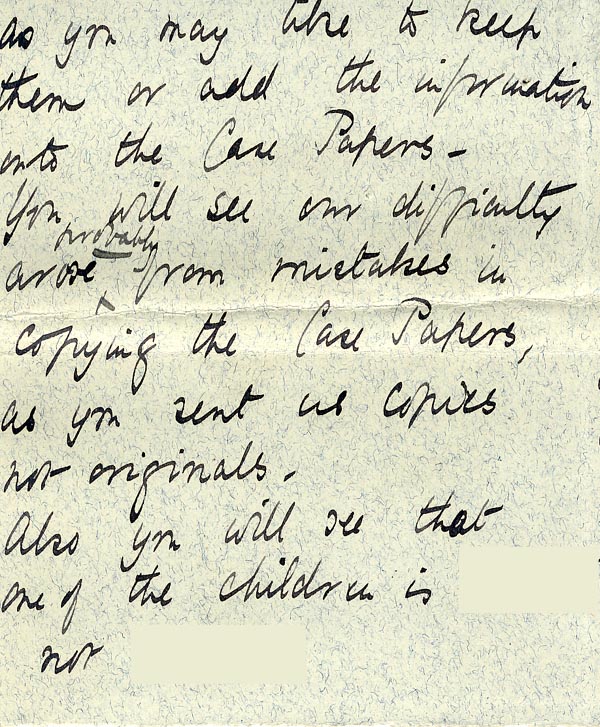 as you may like to keep
them or add the information
onto the Case Papers -
You will see our difficulty
probably
arose from mistakes in
copying the Case Papers,
as you sent us copies
not originals -
Also you will see that
one of the children is
not